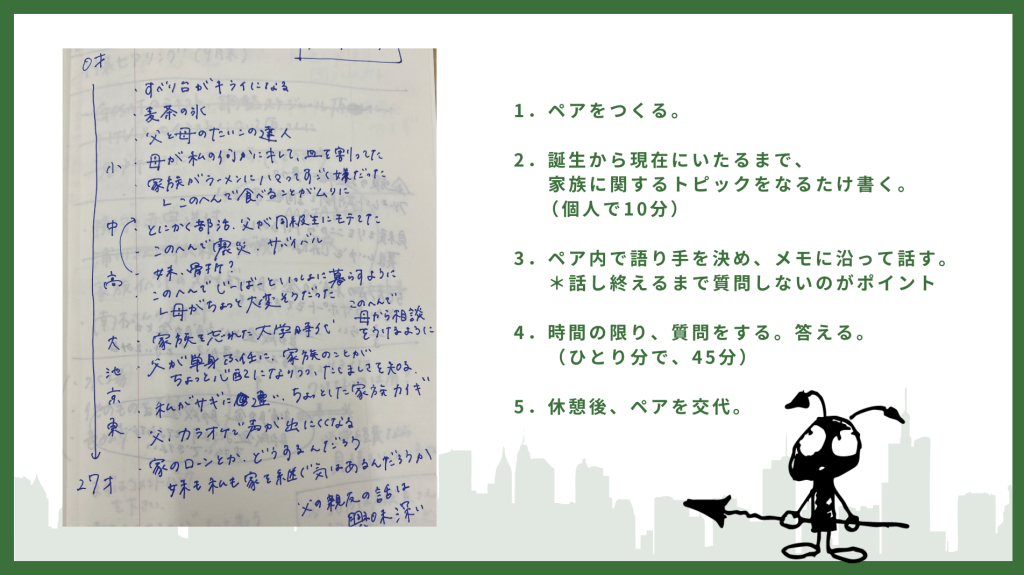 0才
・すべり台がキライになる
・麦茶の氷
・父と母のたいこの達人
小
・母が私の何かにキレて、皿を割ってた
・家族がラーメンにハマってすごく嫌だった
└ このへんで食べることがムリに
中
・とにかく部活、父が同級生にモテてた
・このへんで震災、サバイバル
・妹、骨折？
高
・このへんでじーばーといっしょに暮らすように
└ 母がちょっと大変そうだった
このへんで
母から相談
をうけるように
大
・家族を忘れた大学時代
・父が単身赴任に、家族のことが
ちょっと心配になりつつ、たくましさを知る
池
京
・私がサギに遭い、ちょっとした家族カイギ
東
・父、カラオケで声が出にくくなる
・家のローンとか、どうするんだろう
27才
妹も私も家を継ぐ気はあるんだろうか
・父の親友の話は
興味深い
1. ペアをつくる。
2. 誕生から現在にいたるまで、
家族に関するトピックをなるたけ書く。
（個人で10分）
3. ペア内で語り手を決め、メモに沿って話す。
＊話し終えるまで質問しないのがポイント
4. 時間の限り、質問をする。答える。
（ひとり分で、45分）
5. 休憩後、ペアを交代。